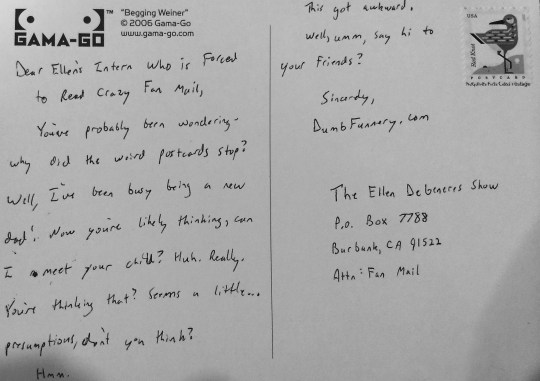 "Begging Weiner"
© 2006 Gama-Go
www.gama-go.com
GAMA-GO™
Dear Ellen's Intern Who is Forced
to Read Crazy Fan Mail,
You've probably been wondering-
why did the weird postcards stop?
Well, I've been busy being a new
dad! Now you're likely thinking, can
I meet your child? Huh. Really.
You're thinking that? Seems a little...
presumptious, don't you think?
Hmm.
This got awkward.
Well, umm, say hi to
your friends?
Sincerely,
DumbFunnery.com
USA
Red Knot
POSTCARD
The Ellen DeGeneres Show
P.O. Box 7788
Burbank, CA 91522
Attn: Fan Mail